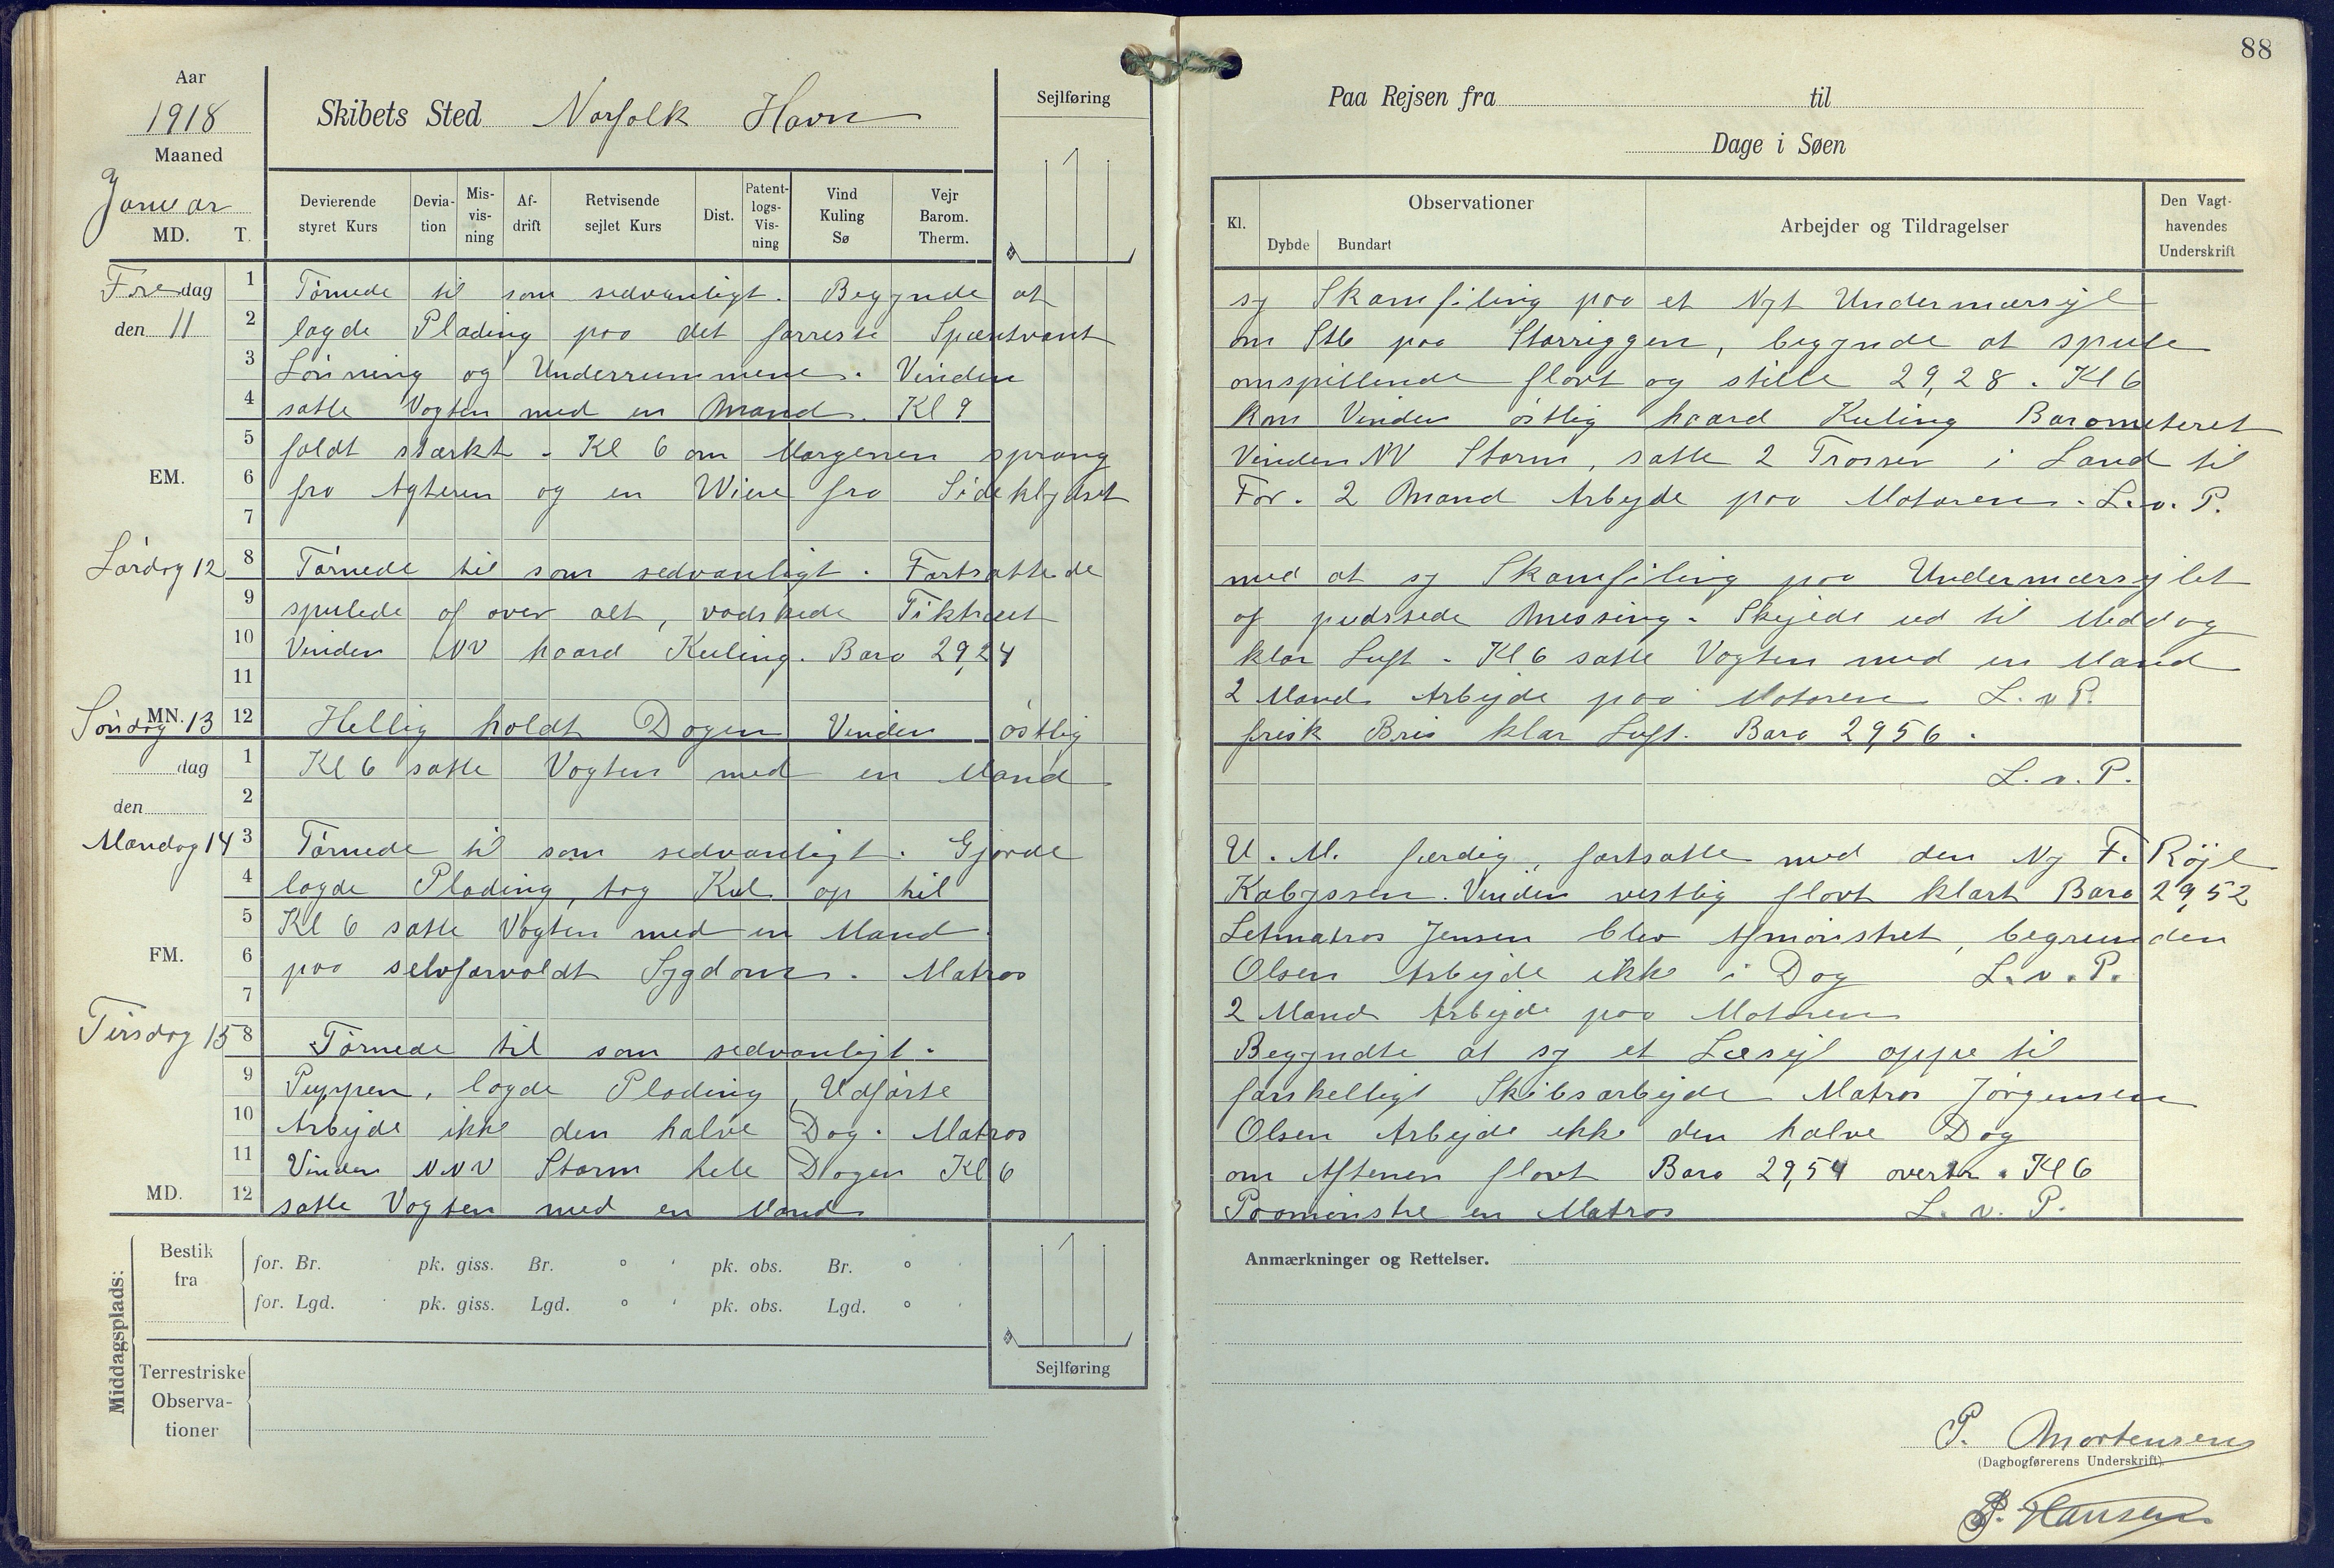 88
Aar
1918
Maaned
Januar
MD. T.
Skibets Sted Norfolk Havn
Sejlføring
Paa Rejsen fra til
Dage i Søen
Devierende styret Kurs
Deviation
Misvisning
Afdrift
Retvisende sejlet Kurs
Dist.
Patentlogs-Visning
Vind Kuling Sø
Vejr Barom. Therm.
Kl.
Observationer
Dybde
Bundart
Arbejder og Tildragelser
Den Vagthavendes Underskrift
Fredag
den 11
1 Törnede til som sedvanligt. Begynde at sy Skamfiling paa et Nyt Undermærsejl
2 lagde Plading paa det forreste Spæntvant om Stb paa Storriggen, begynde at spule
3 Lönning og Underrummene. Vinden omspillende flovt og stille 29,28. Kl 6
4 satte Vagten med en Mand. Kl 9 kom Vinden östlig haard Kuling Barometeret
5 faldt stærkt. Kl 6 om Morgenen sprang Vinden NV Storm, satte 2 Trosser i Land til
EM.
6 fra Agteren og en Wire fra Sideklydset For. 2 Mand Arbejde paa Motoren. L. v. P.
7
Lördag 12
8 Törnede til som sedvanligt. Fortsattede med at sy Skamfiling paa Undermærsejlet
9 spulede af over alt, vadskede Tiktræet og pudssede Messing. Skejede ud til Meddag
10 Vinden NV haard Kuling. Baro 29,24 klar Luft. Kl 6 satte Vagten med en Mand
11 2 Mand Arbejde paa Motoren L. v P.
MN.
Söndag 13
12 Hellig holdt Dagen Vinden östlig frisk Bris klar Luft. Baro 29,56.
dag
1 Kl 6 satte Vagten med en Mand L. v. P.
den
2
Mandag 14
3 Törnede til som sedvanligt. Gjörde U. M. færdig, fortsatte med den Ny F. Röjl
4 lagde Plading, tog Kul op til Kabyssen. Vinden vestlig flovt klart Baro 29,52
5 Kl 6 satte Vagten med en Mand. Letmatros Jensen blev Afmönstret, begrunden
FM.
6 paa selvforvoldt Sygdom. Matros Olsen Arbejde ikke i Dag L. v. P.
7 2 Mand Arbejde paa Motoren
Tirsdag 15
8 Törnede til som sedvanligt. Begyndte at sy et Læsejl oppe til
9 Puppen, lagde Plading, Udförte forskelligt Skibsarbejde Matros Jörgensen
10 Arbejde ikke den halve Dag. Matros Olsen Arbejde ikke den halve Dag
11 Vinden NNV Storm hele Dagen Kl 6 om Aftenen flovt Baro 29,54 overtr. Kl 6
MD.
12 satte Vagten med en Mand Paamönstre en Matros L. v. P.
Middagsplads:
Bestik fra
for. Br. pk. giss. Br. ° ' pk. obs. Br. ° '
for. Lgd. ' pk. giss. Lgd. ° ' pk. obs. Lgd. ° '
Terrestriske Observationer
Sejlføring
Anmærkninger og Rettelser.
P. Mortensen
(Dagbogførerens Underskrift).
P. Hansen